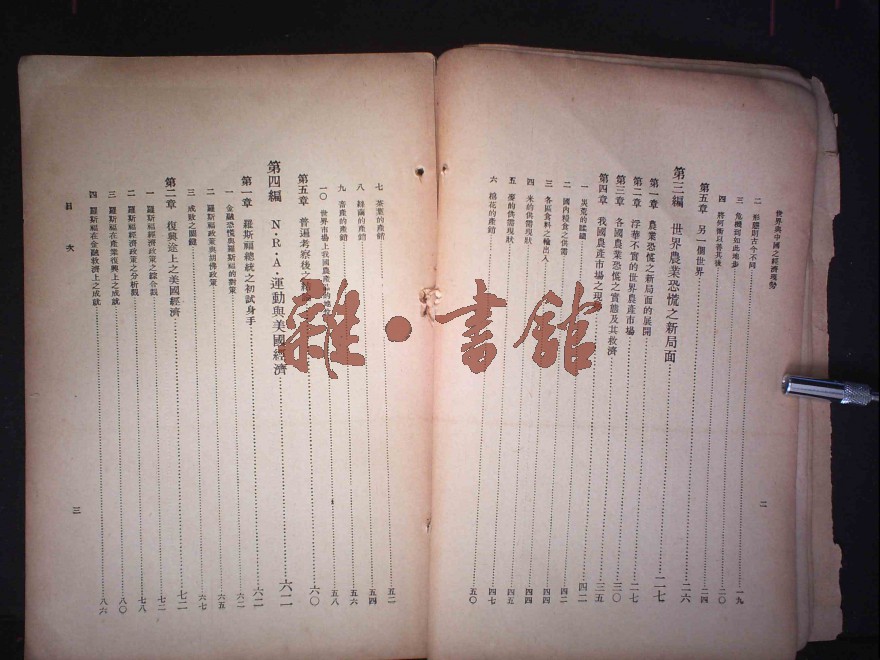 世界與中國之經濟現勢
二 形態則古今不同 一九
三 危機到如此地步 二〇
四 將何術以善其後 二四
第五章 另一個世界 二六
第三編 世界農業恐慌之新局面 二七
第一章 農業恐慌之新局面的展開 二七
第二章 浮華不實的世界農產市場 三〇
第三章 各國農業恐慌之實態及其救濟 三五
第四章 我國農產市場之現
一 災荒的蹂躪 四二
二 國內糧食之供需 四二
三 各區食料之輸出入 四四
四 米的供需現狀 四四
五 麥的供需現狀 四五
六 棉花的產銷 五〇
二
七 茶葉的產銷 五二
八 絲繭的產銷 五四
九 畜產的產銷 五六
一〇 世界市場上我國農產品的 五八
第五章 普遍考察後之 六〇
第四編 N·R·A·運動與美國經濟 六二
第一章 羅斯福總統之初試身手 六二
一 金融恐慌與羅斯福的對策 六二
二 羅斯福政策與胡佛政策 六五
三 成敗之關鍵 六七
第二章 復興途上之美國經濟 七二
一 羅斯福經濟政策之綜合觀 七二
二 羅斯福經濟政策之分析觀 七八
三 羅斯福在產業復興上之成就 八〇
四 羅斯福在金融救濟上之成就 八六
目次
三
雜·書館